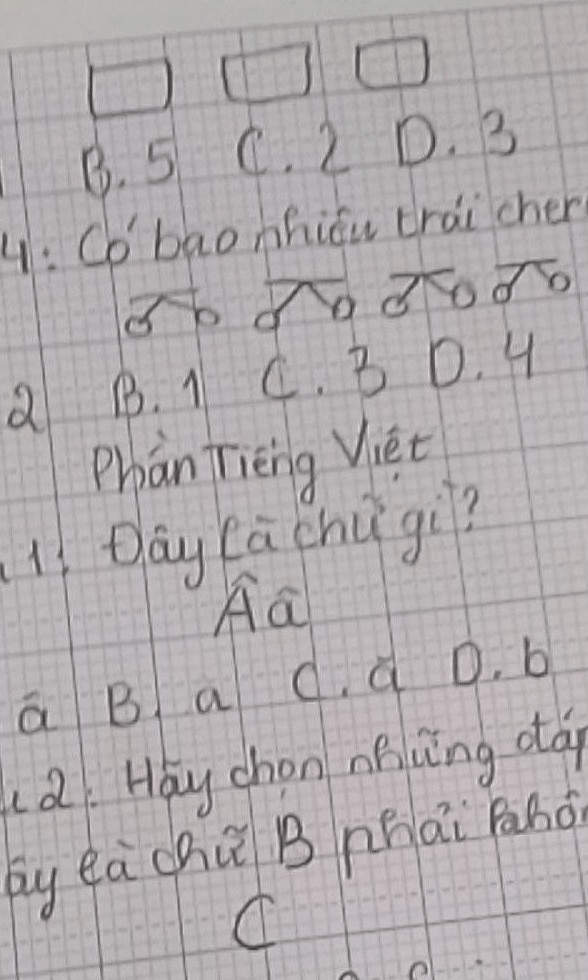 B. 5 C. 2 D. 3
4: Có bao nhiêu trái cher
2 B. 1 C. 3 D. 4
Phần Tiếng Việt
1: Đây là chữ gì?
Ââ
â B. a C. d D. b
2: Hãy chọn những đáp
ây là chữ B phải không
C